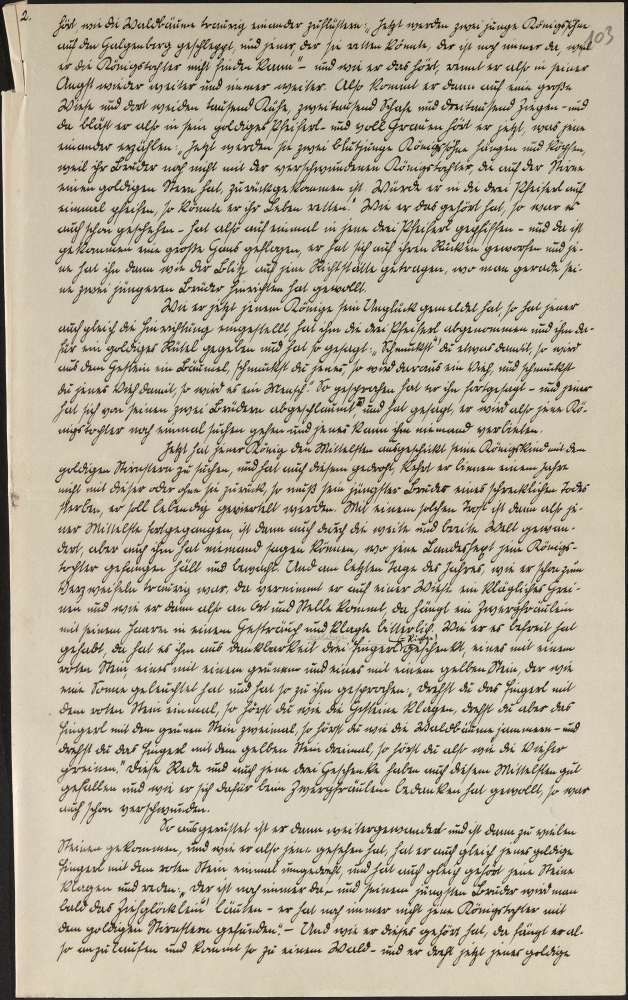 2.
103
hört wie die Waldbäume traurig einander zuflüstern: „Jetzt werden zwei junge Königssöhne
auf den Galgenberg geschleppt, und jener, der sie retten könnte, der ist noch immer da, weil
er die Königstochter nicht finden kann" – und wie er das hört, rennt er also in seiner
Angst wieder weiter und immer weiter. Also kommt er dann auf eine große
Wiese und dort weiden tausend Kühe, zweitausend Schafe und dreitausend Ziegen – und
da bläst er also in sein goldiges Pfeiferl und voll Grauen hört er jetzt, was jene
einander erzählen: „Jetzt werden sie zwei blutjunge Königssöhne hängen und köpfen,
weil ihr Bruder noch nicht mit der verschwundenen Königstochter, die auf der Stirne
einen goldigen Stern hat, zurückgekommen ist. Würde er in die drei Pfeiferl auf
einmal pfeifen, so könnte er ihr Leben retten." Wie er das gehört hat, so war es
auch schon geschehen – hat also auf einmal in jene drei Pfeiferl gepfiffen – und da ist
gekommen eine große Gans geflogen, er hat sich auch ihren Rücken geworfen und je-
ne hat ihn dann wie der Blitz auf jene Richtstätte getragen, wo man gerade sei-
ne zwei jüngeren Brüder hinrichten hat gewollt.
Wie er jetzt jenem Könige sein Unglück gemeldet hat, so hat jener
auch gleich die Hinrichtung eingestellt, hat ihm die drei Pfeiferl abgenommen und ihm da-
für ein goldiges Rütel gegeben und hat so gesagt: „Schmuckst du etwas damit, so wird
aus dem Gestein ein Bäumel, schmuckst du jenes, so wird daraus ein Vieh, und schmuckst
du jenes Vieh damit, so wird es ein Mensch." So gesprochen hat er ihn fortgejagt – und jener
hat sich von seinen zwei Brüdern und hat gesagt, er wird also jene Kö-
nigstochter noch einmal suchen gehen und jenes kann ihm niemand verbieten.
Jetzt hat jener König den Mittelsten ausgeschickt seine Königskind mit dem
goldigen Stirnstern zu suchen, und hat auch diesem gedroht, kehrt er binnen einem Jahre
nicht mit dieser oder ohne sie zurück, so muß sein jüngster Bruder eines schrecklichen Todes
sterben, er soll lebendig geviertelt werden. Mit einem solchen Trost ist dann also je-
ner Mittelste fortgegangen, ist dann auch durch die weite und breite Welt gewan-
dert, aber auch ihm hat niemand sagen können, wo jene Landeshext jene Königs-
tochter gefangen hält und bewacht. Und am letzten Tage des Jahres, wie er schon zum
Verzweifeln traurig war, da vernimmt er auf einer Wiese ein klägliches Grei-
nen und wie er dann also an Ort und Stelle kommt, da hängt ein Zwergfräulein
mit seinem Haaren in einem Gesträuch und klagte bitterlich. Wie er es befreit hat
gehabt, da hat es ihm aus Dankbarkeit drei Fingerl geschenkt, eines mit einem
roten Stein eines mit einem grünen und eines mit einem gelben Stein, der wie
eine Sonne geleuchtet hat und hat so zu ihm gesprochen: „drehst du das Fingerl mit
dem roten Stein einmal, so hörst du wie die Gesteine klagen, drehst du aber das
Fingerl mit dem grünen Stein zweimal, so hörst du wie die Waldbäume jammern – und
drehst du das Fingerl mit dem gelben Stein dreimal, so hörst du also wie die Viecher
greinen." Diese Rede und auch jene drei Geschenke haben auch diesem Mittelsten gut
gefallen und wie er sich dafür beim Zwergfräulein bedanken hat gewollt, so war
auch schon verschwunden.
So ausgerüstet ist er dann weitergewandert und ist dann zu vielen
Steinen gekommen, und wie er also jene gesehen hat, hat er auch gleich jenes goldige
Fingerl mit dem roten Stein einmal umgedreht, und hat auch gleich gehört jene Steine
klagen und reden: „Der ist noch immer da, und seinem jüngsten Bruder wird man
bald das Zieglöcklein läuten – er hat noch immer nicht jene Königstochter mit
dem goldigen Stirnstern gefunden." – Und wie er dieses gehört hat, da fängt er al-
so an zu laufen und kommt so zu einem Wald – und er dreht jetzt jenes goldige